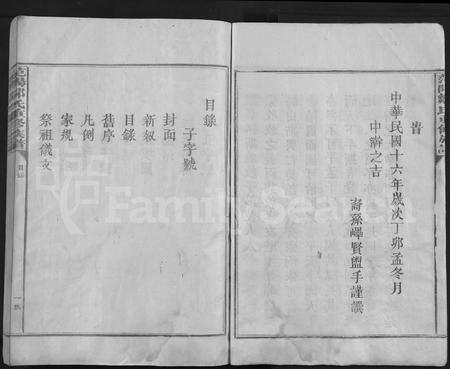 晋
中華民國十六年歲次丁卯孟冬月
中澣之吉
裔孫嶧賢盥手謹譔
目錄
子字號
封面
新叙
目錄
舊序
凡例
家規
祭祖儀文
鄭氏重修族譜
目錄
FamilySearch